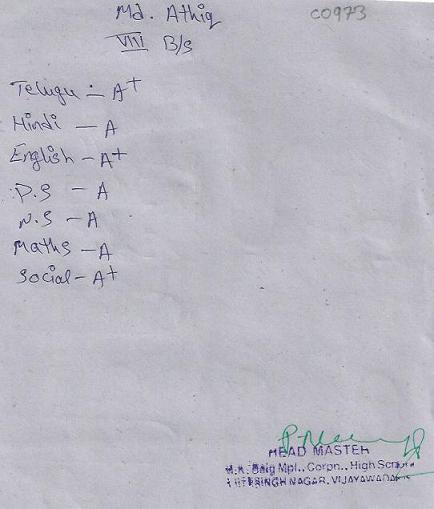 Md. Athiq
C0973
VIII B/s
Telugu - A+
Hindi - A
English - A+
P.S - A
N.S - A
Maths - A
Social - A+
HEAD MASTER
Baig Mpl., Corpn., High School
NAGAR, VIJAYAWADA